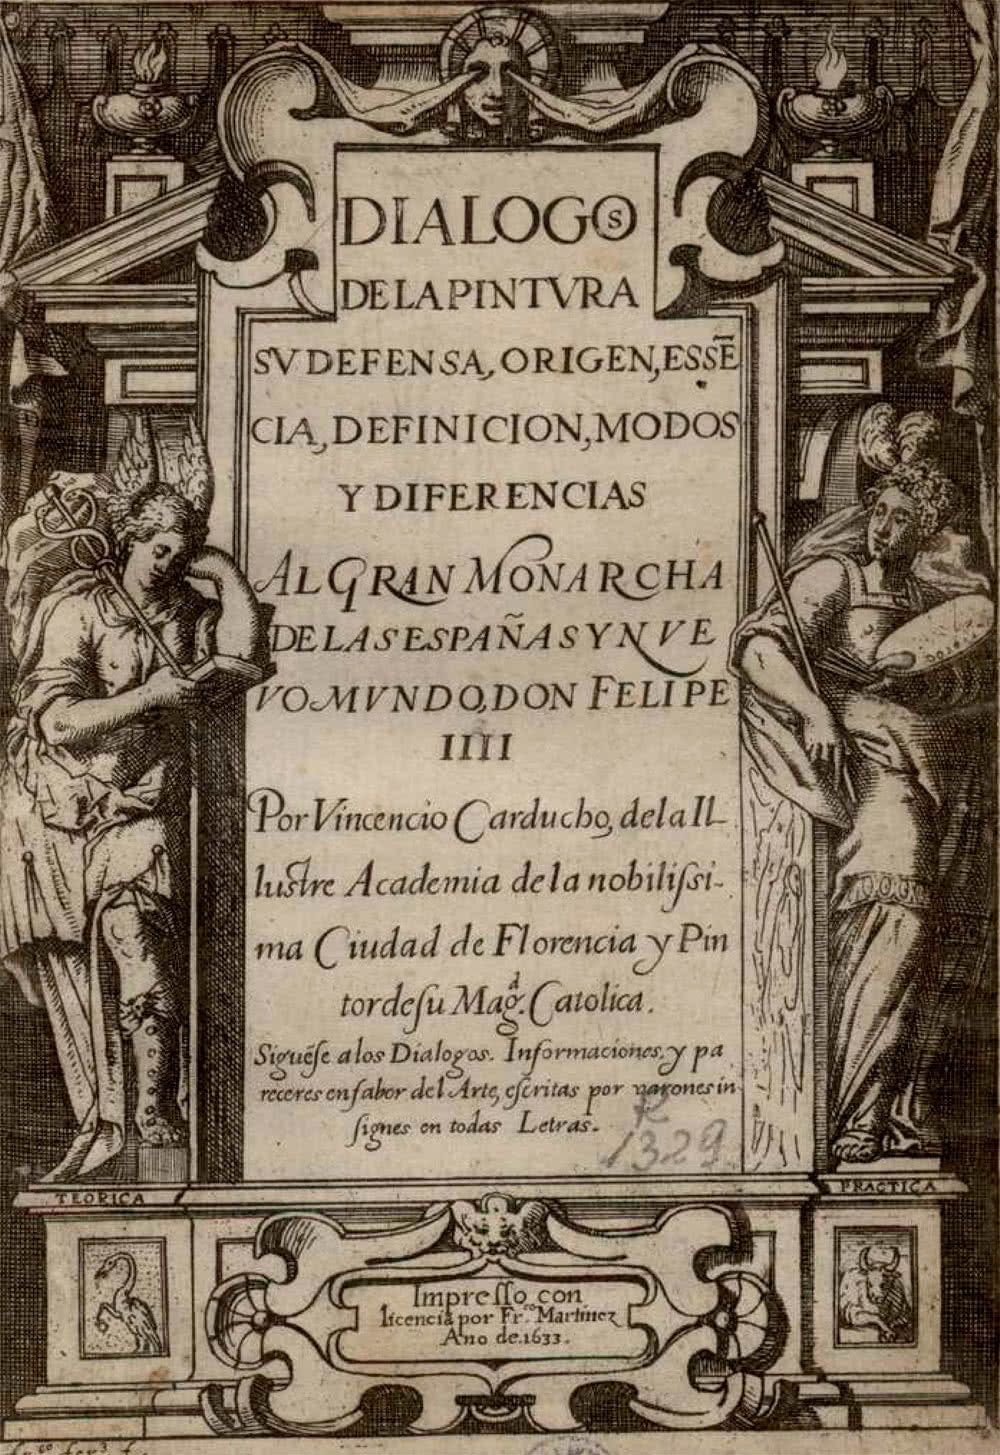 DIALOGOS
DE LA PINTVRA
SV DEFENSA, ORIGEN, ESSĒ
CIA, DEFINICION, MODOS
Y DIFERENCIAS
AL GRAN MONARCHA
DE LAS ESPAÑAS Y NVE
VO MVNDO, DON FELIPE
IIII
Por Vincencio Carducho, de la Il-
lustre Academia de la nobiliſsi-
ma Ciudad de Florencia y Pin
tor de ſu Mag.ᵈ Catolica.
Siguēſe a los Dialogos. Informaciones, y pa
receres en fabor del Arte, eſcritas por varones in
ſignes en todas Letras.
R
1329
TEORICA
PRACTICA
Impreſſo con
licencia por Fr.ᶜᵒ Martinez
Año de.1633.